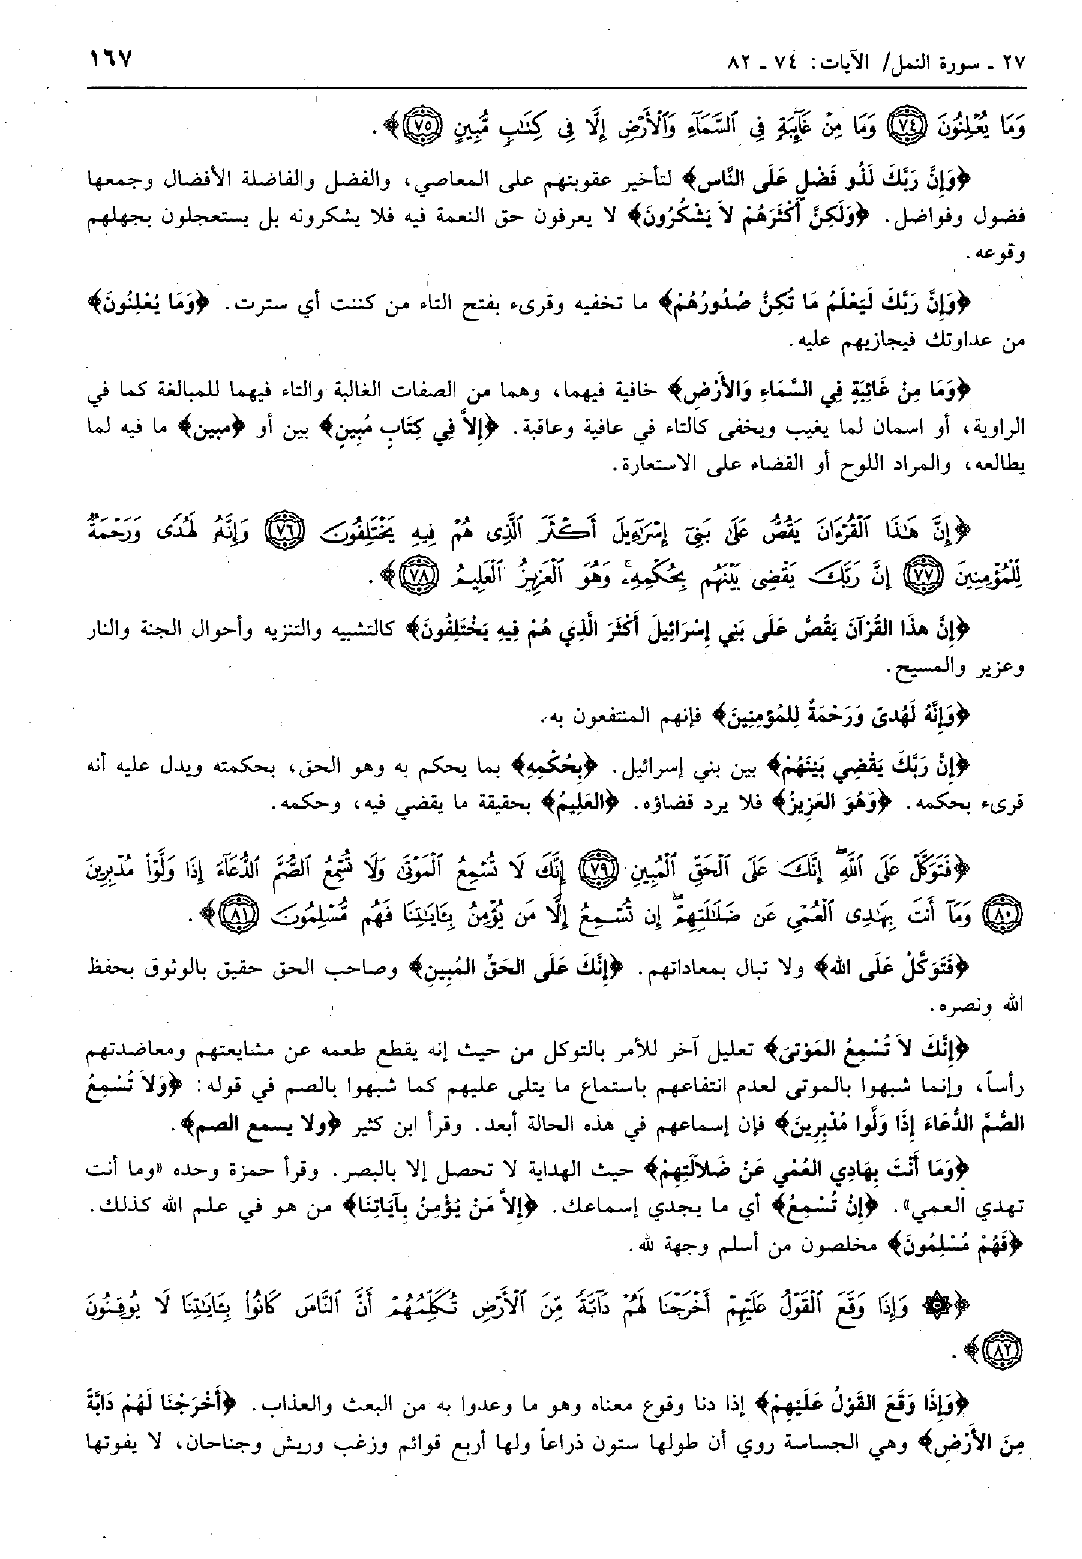 ٢٧ ـ سورة النمل/ الآيات: ٧٤ ـ ٨٢
١٦٧
وَمَا يُعْلِنُونَ ﴿٧٤﴾ وَمَا مِنْ غَآئِبَةٍ فِي السَّمَآءِ وَالْأَرْضِ إِلَّا فِي كِتَٰبٍ مُّبِينٍ ﴿٧٥﴾﴾.
﴿وَإِنَّ رَبَّكَ لَذُو فَضْلٍ عَلَى النَّاسِ﴾ لتأخير عقوبتهم على المعاصي، والفضل والفاضلة الأفضال وجمعها
فضول وفواضل. ﴿وَلَكِنَّ أَكْثَرَهُمْ لاَ يَشْكُرُونَ﴾ لا يعرفون حق النعمة فيه فلا يشكرونه بل يستعجلون بجهلهم
وقوعه.
﴿وَإِنَّ رَبَّكَ لَيَعْلَمُ مَا تُكِنُّ صُدُورُهُمْ﴾ ما تخفيه وقرىء بفتح التاء من كننت أي سترت. ﴿وَمَا يُعْلِنُونَ﴾
من عداوتك فيجازيهم عليه.
﴿وَمَا مِنْ غَائِبَةٍ فِي السَّمَاءِ وَالأَرْضِ﴾ خافية فيهما، وهما من الصفات الغالبة والتاء فيهما للمبالغة كما في
الراوية، أو اسمان لما يغيب ويخفى كالتاء في عافية وعاقبة. ﴿إِلاَّ فِي كِتَابٍ مُبِينٍ﴾ بين أو ﴿مبين﴾ ما فيه لما
يطالعه، والمراد اللوح أو القضاء على الاستعارة.
﴿إِنَّ هَٰذَا الْقُرْءَانَ يَقُصُّ عَلَىٰ بَنِيٓ إِسْرَٰٓءِيلَ أَكْثَرَ الَّذِي هُمْ فِيهِ يَخْتَلِفُونَ ﴿٧٦﴾ وَإِنَّهُ لَهُدًى وَرَحْمَةٌ
لِّلْمُؤْمِنِينَ ﴿٧٧﴾ إِنَّ رَبَّكَ يَقْضِي بَيْنَهُم بِحُكْمِهِۦ وَهُوَ الْعَزِيزُ الْعَلِيمُ ﴿٧٨﴾﴾.
﴿إِنَّ هذَا القُرْآنَ يَقُصُّ عَلَى بَنِي إِسْرَائِيلَ أَكْثَرَ الَّذِي هُمْ فِيهِ يَخْتَلِفُونَ﴾ كالتشبيه والتنزيه وأحوال الجنة والنار
وعزير والمسيح.
﴿وَإِنَّهُ لَهُدىً وَرَحْمَةٌ لِلمُؤْمِنِينَ﴾ فإنهم المنتفعون به.
﴿إِنَّ رَبَّكَ يَقْضِي بَيْنَهُمْ﴾ بين بني إسرائيل. ﴿بِحُكْمِهِ﴾ بما يحكم به وهو الحق، بحكمته ويدل عليه أنه
قرىء بحكمه. ﴿وَهُوَ العَزِيزُ﴾ فلا يرد قضاؤه. ﴿العَلِيمُ﴾ بحقيقة ما يقضي فيه، وحكمه.
﴿فَتَوَكَّلْ عَلَى اللَّهِ إِنَّكَ عَلَى الْحَقِّ الْمُبِينِ ﴿٧٩﴾ إِنَّكَ لَا تُسْمِعُ الْمَوْتَىٰ وَلَا تُسْمِعُ الصُّمَّ الدُّعَآءَ إِذَا وَلَّوْا۟ مُدْبِرِينَ
﴿٨٠﴾ وَمَآ أَنتَ بِهَٰدِي الْعُمْيِ عَن ضَلَٰلَتِهِمْ إِن تُسْمِعُ إِلَّا مَن يُؤْمِنُ بِـَٔايَٰتِنَا فَهُم مُّسْلِمُونَ ﴿٨١﴾﴾.
﴿فَتَوَكَّلْ عَلَى الله﴾ ولا تبال بمعاداتهم. ﴿إِنَّكَ عَلَى الحَقِّ المُبِينِ﴾ وصاحب الحق حقيق بالوثوق بحفظ
الله ونصره.
﴿إِنَّكَ لاَ تُسْمِعُ المَوْتىَ﴾ تعليل آخر للأمر بالتوكل من حيث إنه يقطع طعمه عن مشايعتهم ومعاضدتهم
رأساً، وإنما شبهوا بالموتى لعدم انتفاعهم باستماع ما يتلى عليهم كما شبهوا بالصم في قوله: ﴿وَلاَ تُسْمِعُ
الصُّمَّ الدُّعَاءَ إِذَا وَلَّوا مُدْبِرِينَ﴾ فإن إسماعهم في هذه الحالة أبعد. وقرأ ابن كثير ﴿ولا يسمع الصم﴾.
﴿وَمَا أَنْتَ بِهَادِي العُمْيِ عَنْ ضَلاَلَتِهِمْ﴾ حيث الهداية لا تحصل إلا بالبصر. وقرأ حمزة وحده «وما أنت
تهدي العمي». ﴿إِنْ تُسْمِعُ﴾ أي ما يجدي إسماعك. ﴿إِلاَّ مَنْ يُؤْمِنُ بِآيَاتِنَا﴾ من هو في علم الله كذلك.
﴿فَهُمْ مُسْلِمُونَ﴾ مخلصون من أسلم وجهة لله.
﴿۞ وَإِذَا وَقَعَ الْقَوْلُ عَلَيْهِمْ أَخْرَجْنَا لَهُمْ دَآبَّةً مِّنَ الْأَرْضِ تُكَلِّمُهُمْ أَنَّ النَّاسَ كَانُوا۟ بِـَٔايَٰتِنَا لَا يُوقِنُونَ
﴿٨٢﴾﴾.
﴿وَإِذَا وَقَعَ القَوْلُ عَلَيْهِمْ﴾ إذا دنا وقوع معناه وهو ما وعدوا به من البعث والعذاب. ﴿أَخْرَجْنَا لَهُمْ دَابَّةً
مِنَ الأَرْضِ﴾ وهي الجساسة روي أن طولها ستون ذراعاً ولها أربع قوائم وزغب وريش وجناحان، لا يفوتها